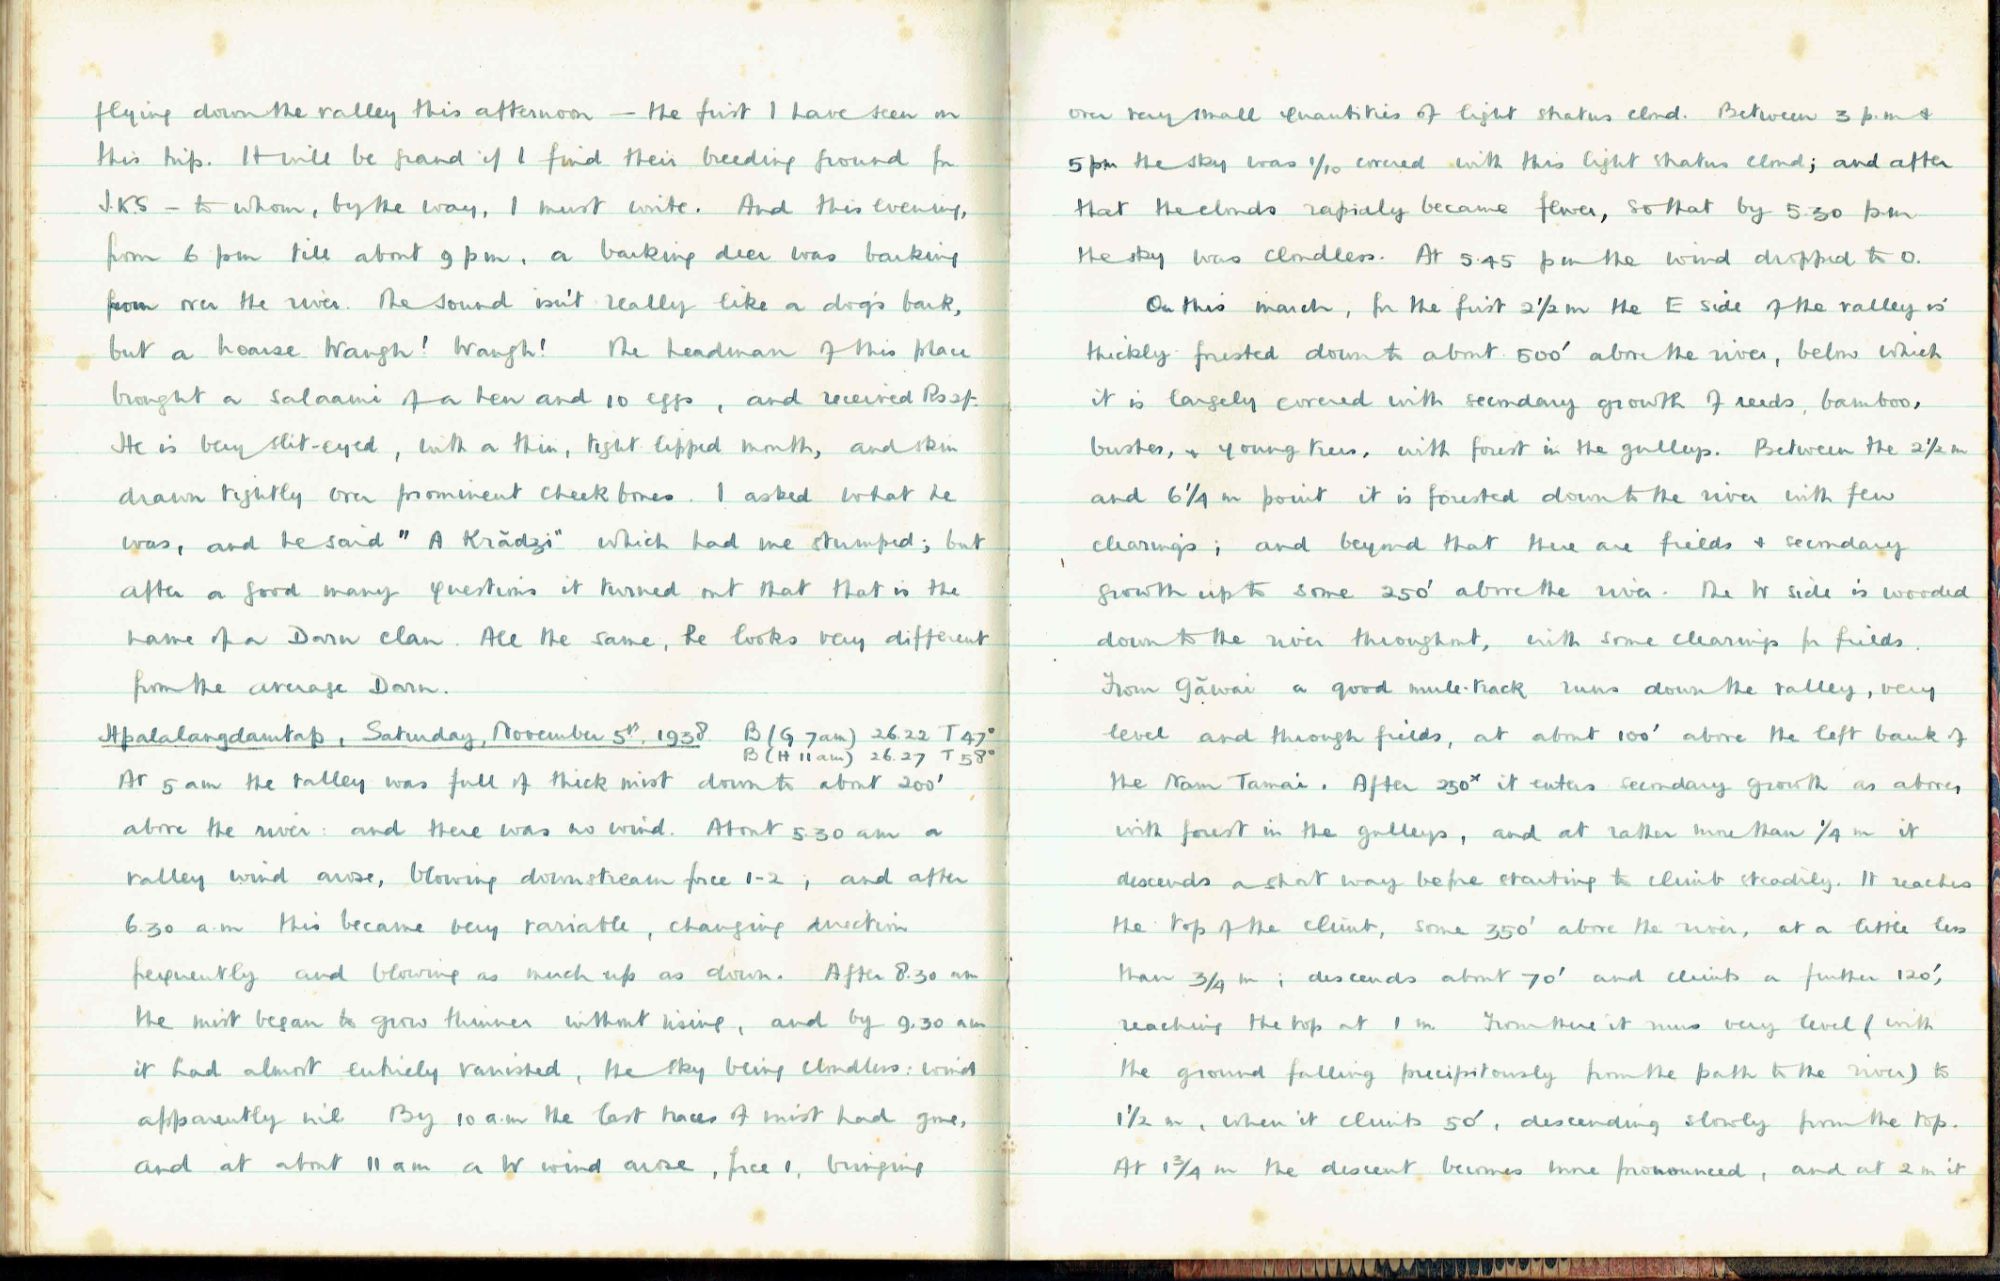 flying down the valley this afternoon — the first I have seen on
this trip. It will be grand if I find their breeding ground for
J.K.S – to whom, by the way, I must write. And this evening,
from 6 pm till about 9 pm, a barking deer was barking
from over the river. The sound isn't really like a dog's bark,
but a hoarse Waugh! Waugh! The headman of this place
brought a salaami of a hen and 10 eggs, and received Rs 2/-.
He is very slit-eyed, with a thin, tight lipped mouth, and skin
drawn tightly over prominent cheekbones. I asked what he
was, and he said "A Krādzi" which had me stumped; but
after a good many questions it turned out that that is the
name of a Daru clan. All the same, he looks very different
from the average Daru.
Hpalalangdamtap, Saturday, November 5th, 1938 B (G 7am) 26.22 T 47°
B (H 11am) 26.27 T 58°
At 5 am the valley was full of thick mist down to about 200'
above the river: and there was no wind. About 5.30 am a
valley wind arose, blowing downstream force 1-2; and after
6.30 a.m this became very variable, changing direction
frequently and blowing as much up as down. After 8.30 am
the mist began to grow thinner without rising, and by 9.30 am
it had almost entirely vanished, the sky being cloudless: wind
apparently nil. By 10 a.m the last traces of mist had gone,
and at about 11 am a W wind arose, force 1, bringing
over very small quantities of light stratus cloud. Between 3 p.m &
5 pm the sky was 1/10 covered with this light stratus cloud; and after
that the clouds rapidly became fewer, so that by 5.30 pm
the sky was cloudless. At 5.45 pm the wind dropped to 0.
On this march, for the first 2½ m the E side of the valley is
thickly forested down to about 500' above the river, below which
it is largely covered with secondary growth of reeds, bamboo,
bushes, & young trees, with forest in the gulleys. Between the 2½ m
and 6¼ m point it is forested down to the river with few
clearings; and beyond that there are fields & secondary
growth up to some 250' above the river. The W side is wooded
down to the river throughout, with some clearings for fields.
From Gāwai a good mule-track runs down the valley, very
level and through fields, at about 100' above the left bank of
the Nam Tamai. After 250x it enters secondary growth as above,
with forest in the gulleys, and at rather more than ¼ m it
descends a short way before starting to climb steadily. It reaches
the top of the climb, some 350' above the river, at a little less
than 3/4 m; descends about 70' and climbs a further 120',
reaching the top at 1 m. From there it runs very level (with
the ground falling precipitously from the path to the river) to
1½ m, when it climbs 50', descending slowly from the top.
At 1¾ m the descent becomes more pronounced, and at 2 m it